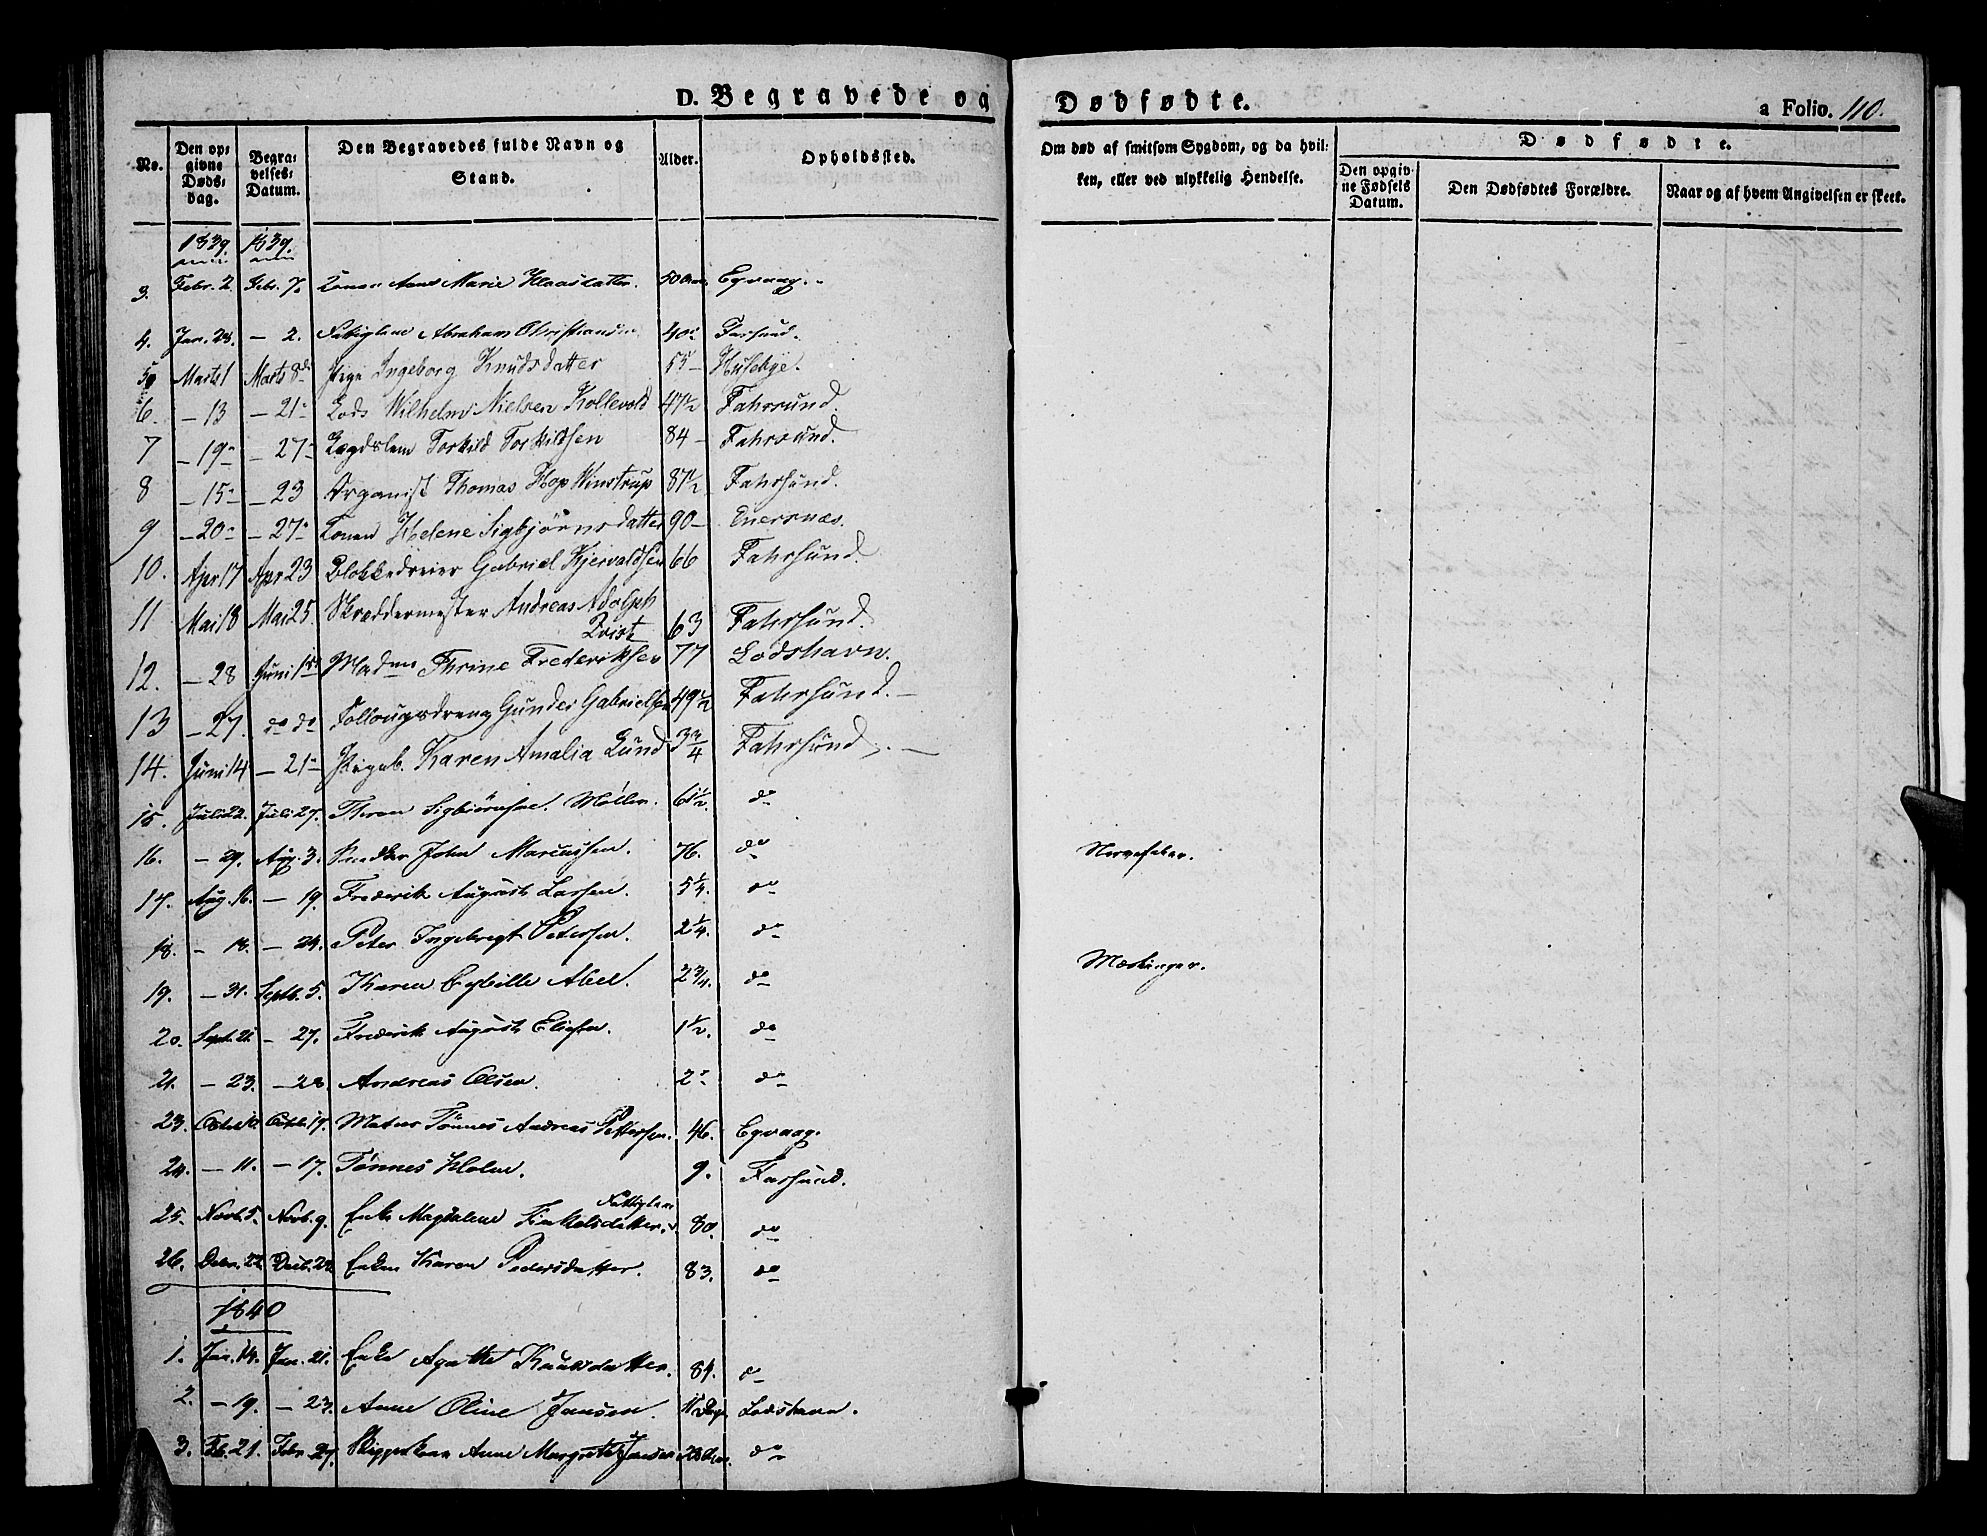 D. Begravede og Dødfødte. a Folio. 110.
No. Den opgivne Dødsdag. Begravelses-Datum. Den Begravedes fulde Navn og Stand. Alder. Opholdssted. Om død af smitsom Sygdom, og da hvilken, eller ved ulykkelig Hendelse. Dødfødte. Den opgivne Fødsels Datum. Den Dødfødtes Forældre. Naar og af hvem Angivelsen er skeet.
1839. 1839.
3. Febr. 2. Febr. 7. Konen Anne Marie Klausdatter. 50 Egvaag.
4. Jan. 28. — 2. Fattiglem Abraham Christiansen 40 Farsund.
5 Marts 1 Marts 8de Pige Ingeborg Knudsdatter 55 — Huseby.
6. — 13 — 21 Lods Wilhelm Nielsen Kollevold 47½ Fahrsund.
7 — 19 — 27 Lægdslem Torkild Torkildsen 84 — Fahrsund.
8 — 15 — 23 Organist Thomas Hop Winstrup 87½ Fahrsund.
9 — 20 — 27 Konen Helene Sigbjørnsdatter 90 — Enersnæs.
10. Apr 17 Apr 23 Blokkedreier Gabriel Kjervaldsen 66 Fahrsund.
11 Mai 18 Mai 25. Skreddermester Andreas Adolph
Qvist 63 Fahrsund.
12. — 28 Juni 1 Madm Thrine Frederiksen 77 Lodshavn.
13 — 27. do do Gunder Gabrielsen 49½ Fahrsund. —
14. Juni 14 — 21 Pigeb. Karen Amalia Lund 3¾ Fahrsund. —
15. Juli 22. Juli 27. Sigbjørnsen Møller. 61½. do
16. — 29. Aug. 3. Snedker John Marcussen. 76. do Nervefeber.
17. Aug. 16. — 19. Frederik August Larsen. 5¼. do
18. — 18. — 24. Peter Ingebrigt Petersen. 2¼. do
19. — 31. Septb. 5. Karen Cybille Abel. 2¾. do Mæslinger.
20. Sept. 21. — 27. Frederik August Eliesen. 1½. do
21. — 23. — 28. Andreas Olsen. 2 do
23. Octob. 12 Octob. 19. Matros Tønnes Andreas Pettersen. 46. Egvaag.
24. — 11. — 17. Tønnes Holm. 9. Farsund.
25. Novb. 5. Novb. 9. Enke Magdalene Finkelsdatter. Fattiglem 80. do
26. Decbr. 22. Decb. 28. Enken Karen Pedersdatter. 83. do
1840
1. Jan. 14. Jan. 21. Enke Agathe Knudsdatter. 84. do
2. — 19. — 23. Anne Oline Jansen. 11 Dage Lodshavn.
3. Fb. 21. Febr. 27. Skipperkone Anne Margrethe Jansen 28 do